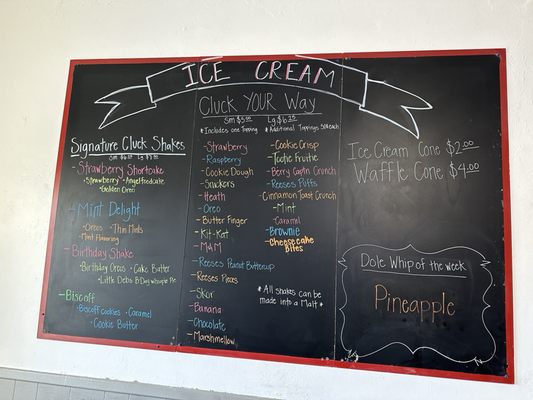 ICE CREAM
Signature Cluck Shakes
Strawberry Shortcake
-Strawberry -Angelfoodcake
-Golden Oreo
-Mint Delight
-Oreos -Thin Mints
-Mint Flavoring
-Birthday Shake
-Birthday Oreos -Cake Batter
-Little Debs B.Day Whoopie Pie
-Biscoff
-Biscoff cookies -Caramel
-Cookie Butter
Cluck YOUR Way
*Includes one Topping *Additional Toppings
-Strawberry
-Raspberry
-Cookie Dough
-Snickers
-Heath
-Oreo
-Butter Finger
-Kit-Kat
-M&M
-Reeses Peanut Buttercup
-Reeses Pieces
-Skor
-Banana
-Chocolate
-Marshmellow
-Cookie Crisp
-Tootie Fruitie
-Berry Captin Crunch
-Reeses Puffs
-Cinnamon Toast Crunch
-Mint
-Caramel
-Brownie
-Cheesecake
Bites
*All shakes can be
made into a Malt*
Ice Cream Cone $2.00
Waffle Cone $4.00
Dole Whip of the week
Pineapple